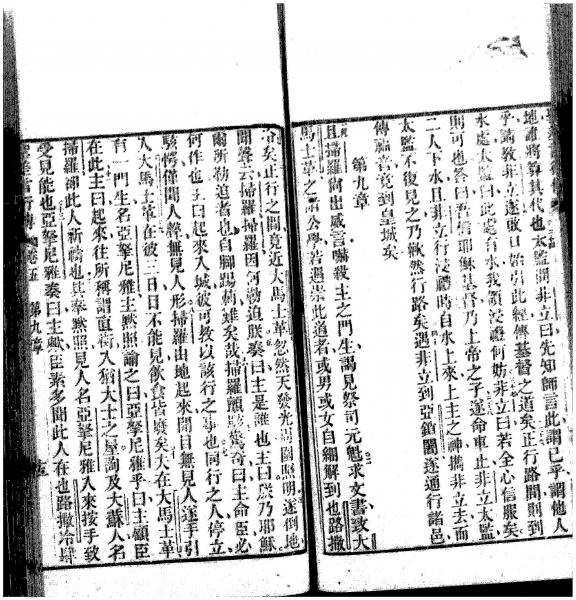 地誰將算其代也太監問非立曰先知師言此謂己乎謂他人
乎請教非立遂啟口始引此經傳基督之道矣正行路間則到
水處太監曰此處有水我領浸禮何妨非立曰若全心信服矣
則可也答曰吾信耶穌基督乃上帝之子遂命車止非立太監
二人下水且非立行浸禮時自水上來上主之神攜非立去而
太監不復見之乃歡然行路矣遇非立到亞鎖閣遂通行諸邑
傳福音竟到皇城矣
第九章
且掃羅尚出威言嚇殺主之門生謁見祭司元魁求文書致大
馬士革之諸公學若遇崇此道者或男或女自綑解到也路撒
冷矣正行之間竟近大馬士革忽然天發光周圍照明遂倒地
聞聲云掃羅掃羅因何勒迫朕奏曰主是誰也主曰朕乃耶穌
爾所勒迫者也自腳踢荊難矣哉掃羅顫兢驚奇曰主命臣必
何作也主曰起來入城彼可教以該行之事也同行之人停立
駭愕僅聞人聲無見人形掃羅由地起來開目無見人遂手引
入大馬士革在彼三日日不能見飲食皆廢矣夫在大馬士革
有一門生名亞拏尼雅主默照諭之曰亞拏尼雅乎曰主顧臣
在此主曰起來往所稱謂直街入猶大士之屋詢及大蘇人名
掃羅卻此人祈禱也其拏默照見人名亞拏尼雅入來按手致
受見能也亞拏尼雅奏曰主歟臣素多聞此人在也路撒冷肆
言行傳 卷五 第九章